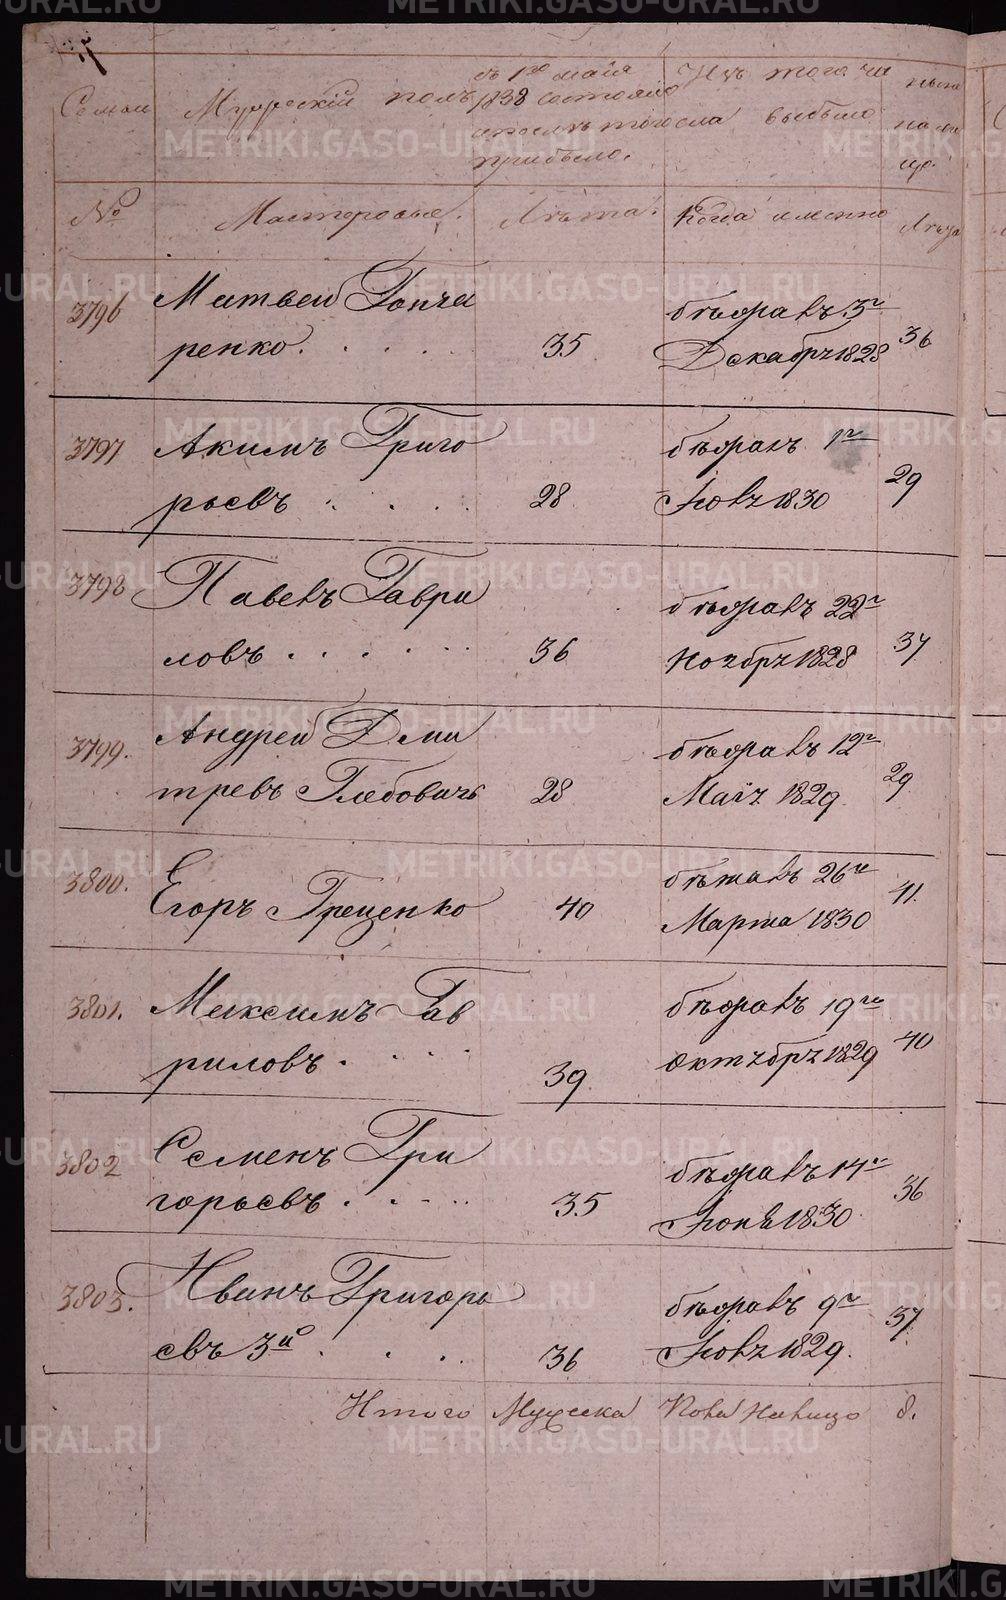 Семьи
Мужескій полъ
въ 1е маія
1838 состояло
и послѣ того
прибыло.
Изъ того числа выбыло
ныне на лицо
№
Мастеровые.
Лѣта.
Когда именно
Лѣта
3796
Матвей Гонча
ренко.
35
бѣжалъ 3го
Декабря 1828
36
3797
Акимъ Григо
рьевъ
28
бѣжалъ 1го
Іюля 1830
29
3798
Павелъ Гаври
ловъ
36
бѣжалъ 22го
Ноября 1828
37
3799.
Андрей Дми
тревъ Глебовичь
28
бѣжалъ 12го
Маія 1829.
29
3800.
Егоръ Греценко
40
бѣжалъ 26го
Марта 1830
41.
3801.
Максимъ Гав
риловъ.
39
бѣжалъ 19го
октября 1829
40
3802
Семенъ Гри
горьевъ.
35
бѣжалъ 14го
Іюня 1830.
36
3803.
Иванъ Григорь
евъ 3й
36
бѣжалъ 9го
Іюля 1829.
37
Итого Мужеска Пола На лицо 8.
METRIKI.GASO-URAL.RU